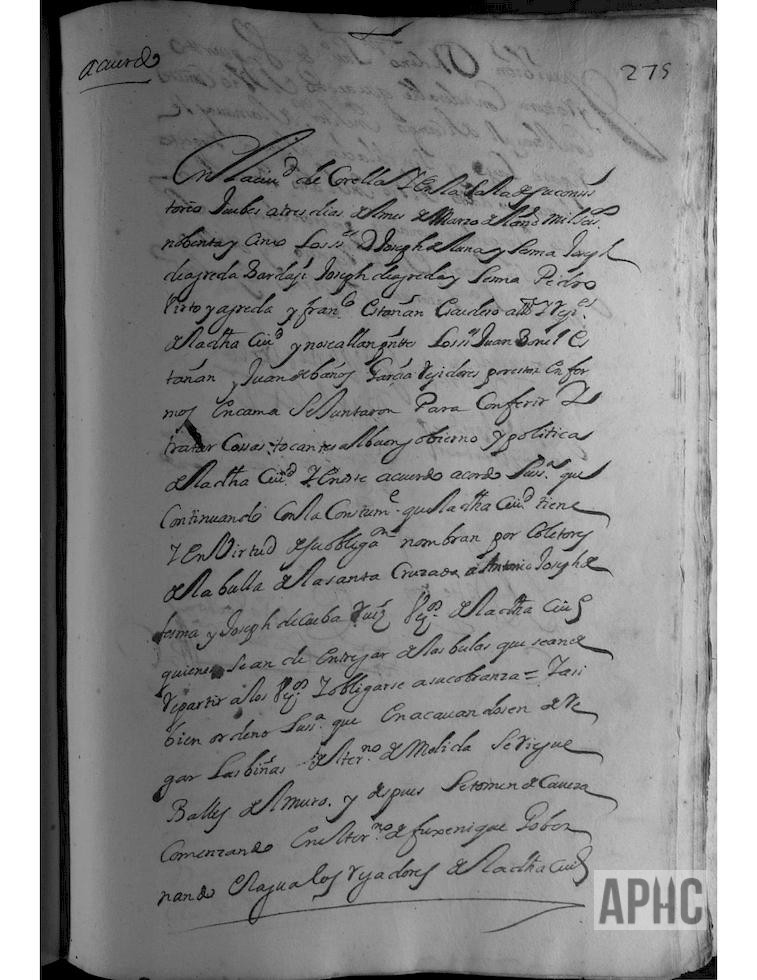 acuerdo
275
En la ciud de Corella Y En la Sala de su consis
torio Juebes a tres dias del mes de Marzo del año mil seisos
nobenta y Cinco Los ss.es D Joseph de Luna y Sesma Joseph
de agreda Bardaji Joseph de agreda y Sesma Pedro
Virto y agreda y fran.co Estañan Escudero alld Y Rejes
de la dha Ciud y no se allan pntes Los ss.es Juan Es
tañan y Juan de baños Garcia Rejidores por estar Enfer
mos En cama Se Juntaron Para Conferir Y
tratar Cossas tocantes al buen gobierno y politica
de la dha Ciud Y En este acuerdo acordo Su ss.a que
Continuando Con la Costume que la dha Ciud tiene
Y En Virtud de su obligaon nombran por Coletores
de la bulla de la santa Cruzada a Antonio Joseph de
sesma y Joseph de Cueba Ruiz Vejos de la dha Ciud
quienes se an de Entregar de las bulas que se an de
Repartir a los Vejos Y obligarse a su cobranza = Y asi
bien ordeno Su ss.a que En acauandosen de Re
gar Las biñas del termno de Melida Se Riegue
Balles de Muro. y despues Se tomen de Cauera
Comenzando En el termno de Gober
nando El agua los Regadores de la dha Ciud
APHC